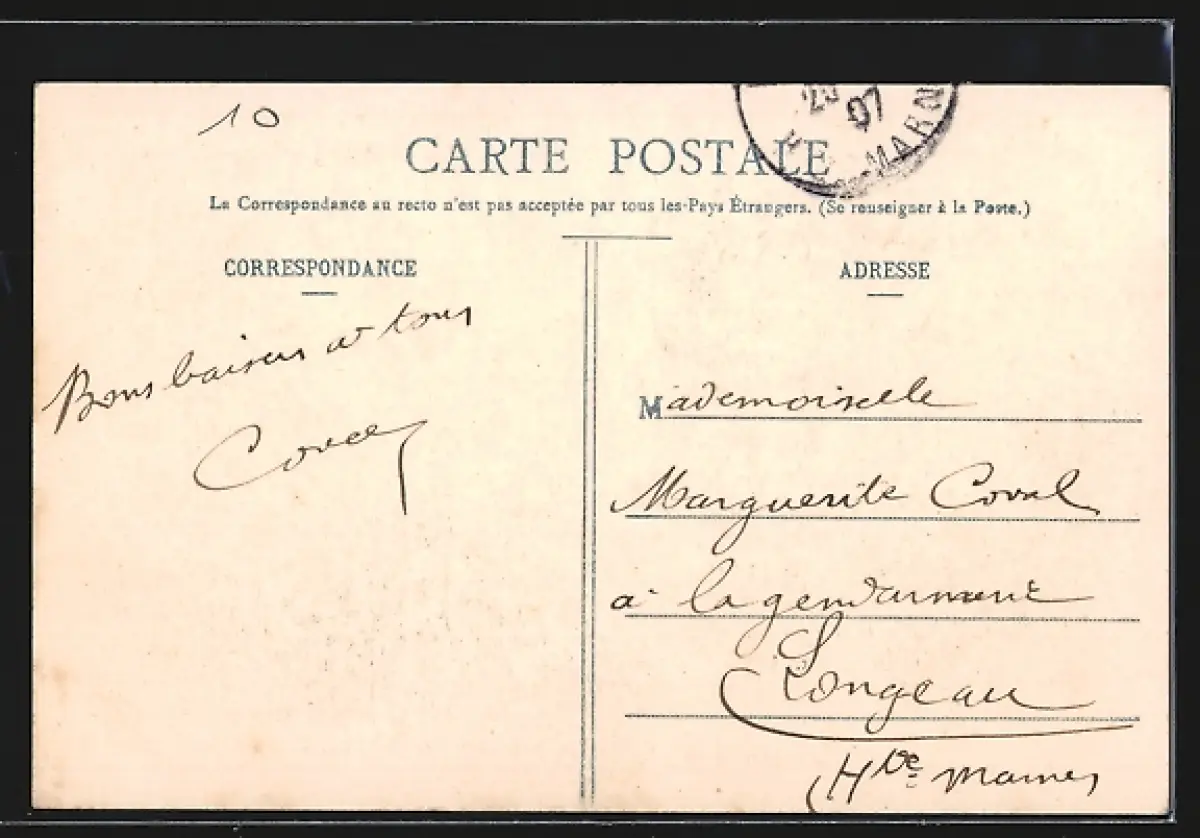 10
CARTE POSTALE
La Correspondance au recto n'est pas acceptée par tous les Pays Étrangers. (Se renseigner à la Poste.)
CORRESPONDANCE
ADRESSE
Bons baisers a tous
Mademoiselle
Marguerite Coval
à la gendarmerie
Longeau
(Hte marne)
07
MARN